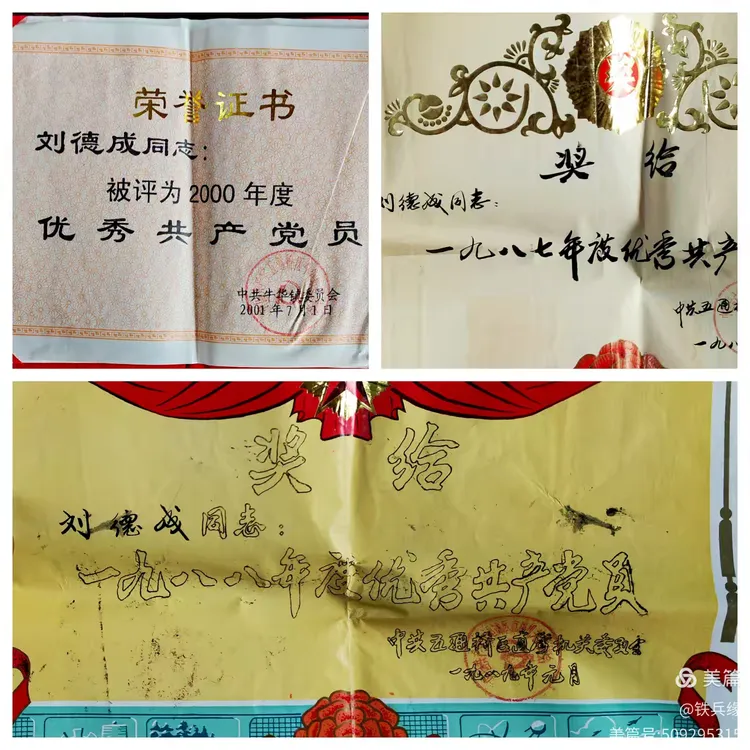 荣誉证书
刘德成同志：
被评为2000年度
优秀共产党员
中共牛华镇委员会
2001年7月1日
奖给
刘德成同志：
一九八七年度优秀共产
中共五通
一九八
奖给
刘德成同志：
一九八八年度优秀共产党员
中共五通桥区直属机关委员会
一九八九年元月
美篇
@铁兵缘
美篇号:509295315